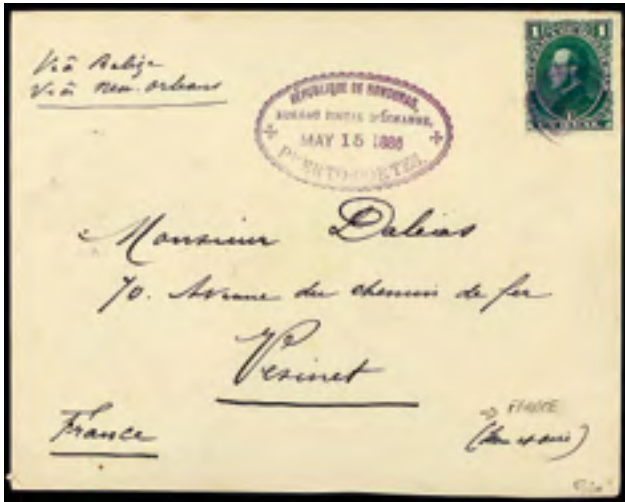 Viâ Belize
Viâ New-orleans
RÉPUBLIQUE DE HONDURAS,
BUREAU POSTAL D'ÉCHANGE,
MAY 15 1886
PUERTO-CORTEZ.
1 1
Monsieur Daleias
70. Avenue du chemin de fer
Vésinet
France
FRANCE